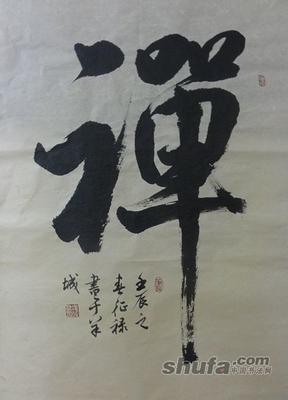 禪
壬辰之
春征祿
書于羊
城
shufa.com
中国书法网